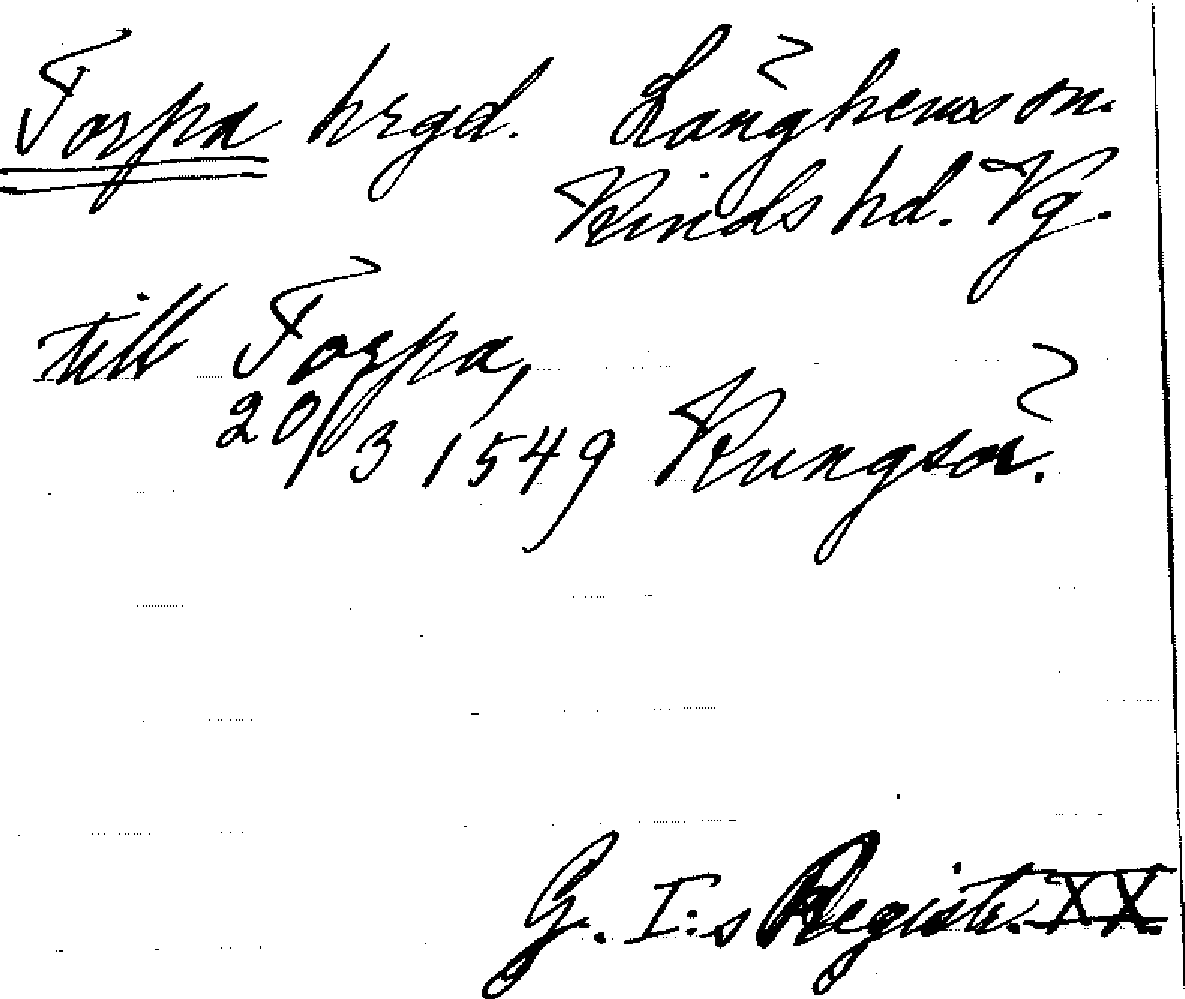 Torpa hrgd. Långhems sn.
Kinds hd. Vg.
till Torpa,
20/3 1549 Kungså.
G. I:s Registr. XX.